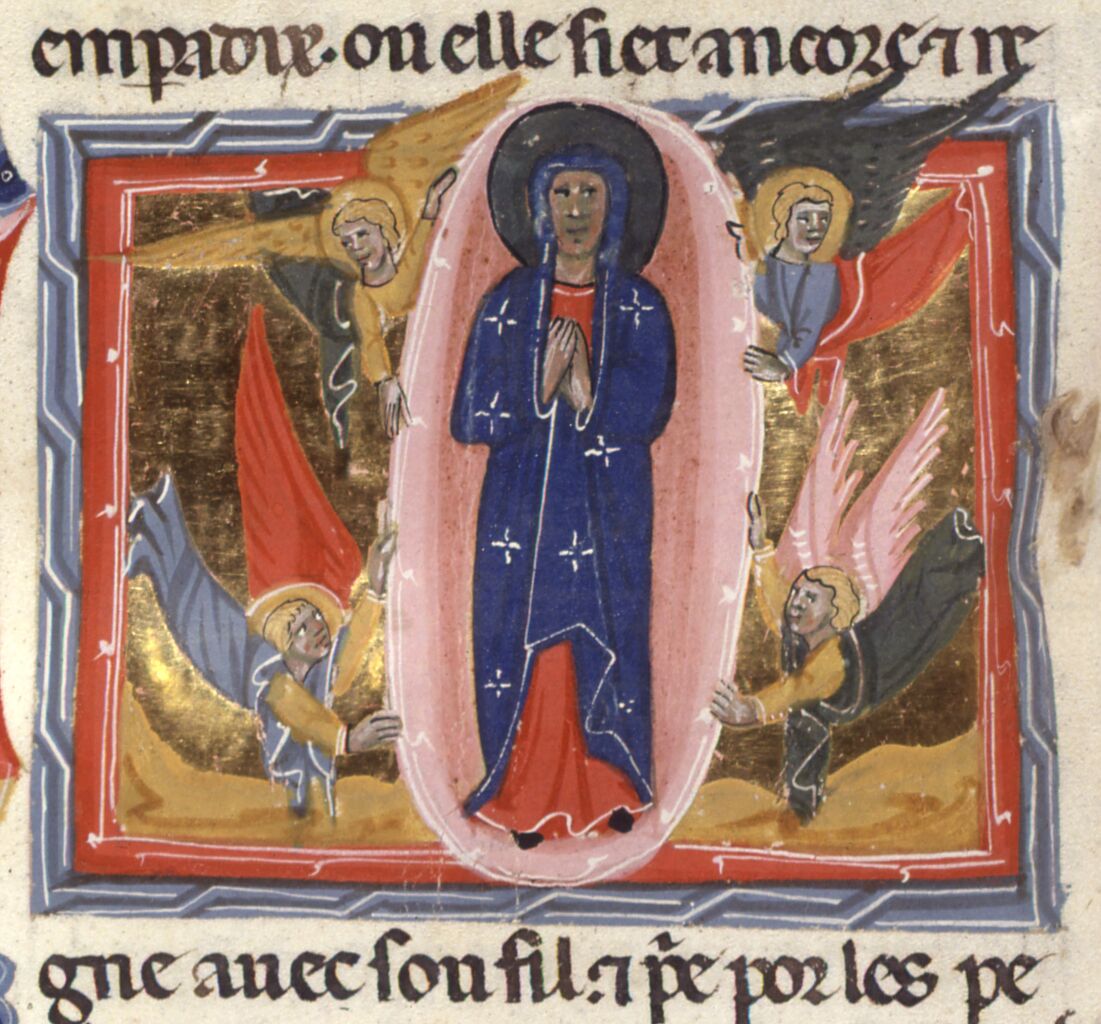 em padix · ou elle siet ancore ⁊ re
gne auec son fil · ⁊ p̃e por les pe